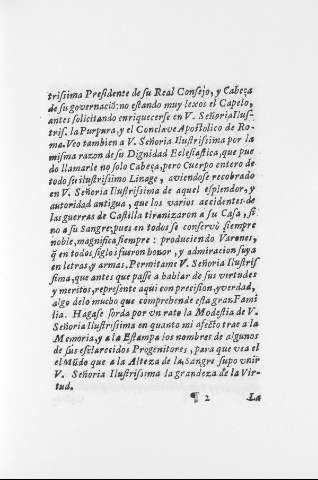 trissima Presidente de su Real Consejo, y Cabeza
de su governació: no estando muy lexos el Capelo,
antes solicitando enriquecerse en V. Señoria Ilus-
tris. la Purpura, y el Conclave Apostolico de Ro-
ma. Veo tambien a V. Señoria Ilustrissima por la
misma razon de su Dignidad Eclesiastica, que pue
do llamarle no solo Cabeza, pero Cuerpo entero de
todo su ilustrissimo Linage, aviendose recobrado
en V. Señoria Ilustrissima de aquel esplendor, y
autoridad antigua, que los varios accidentes de
las guerras de Castilla tiranizaron a su Casa, sí
no a su Sangre, pues en todos se conservò siempre
noble, magnifica siempre: produciendo Varones,
q̃ en todos siglos fueron honor, y admiracion suya
en letras, y armas. Permitame V. Señoria Ilustris
sima, que antes que passe a hablar de sus virtudes
y meritos, represente aqui con precision, y verdad,
algo delo mucho que comprehende esta gran Fami
lia. Hagase sorda por vn rato la Modestia de V.
Señoria Ilustrissima en quanto mi afecto trae a la
Memoria, y a la Estampa los nombres de algunos
de sus esclarecidos Progenitores, para que vea el
el Mũdo que a la Alteza de la Sangre supo vnir
V. Señoria Ilustrissima la grandeza de la Vir-
tud.
¶ 2 La